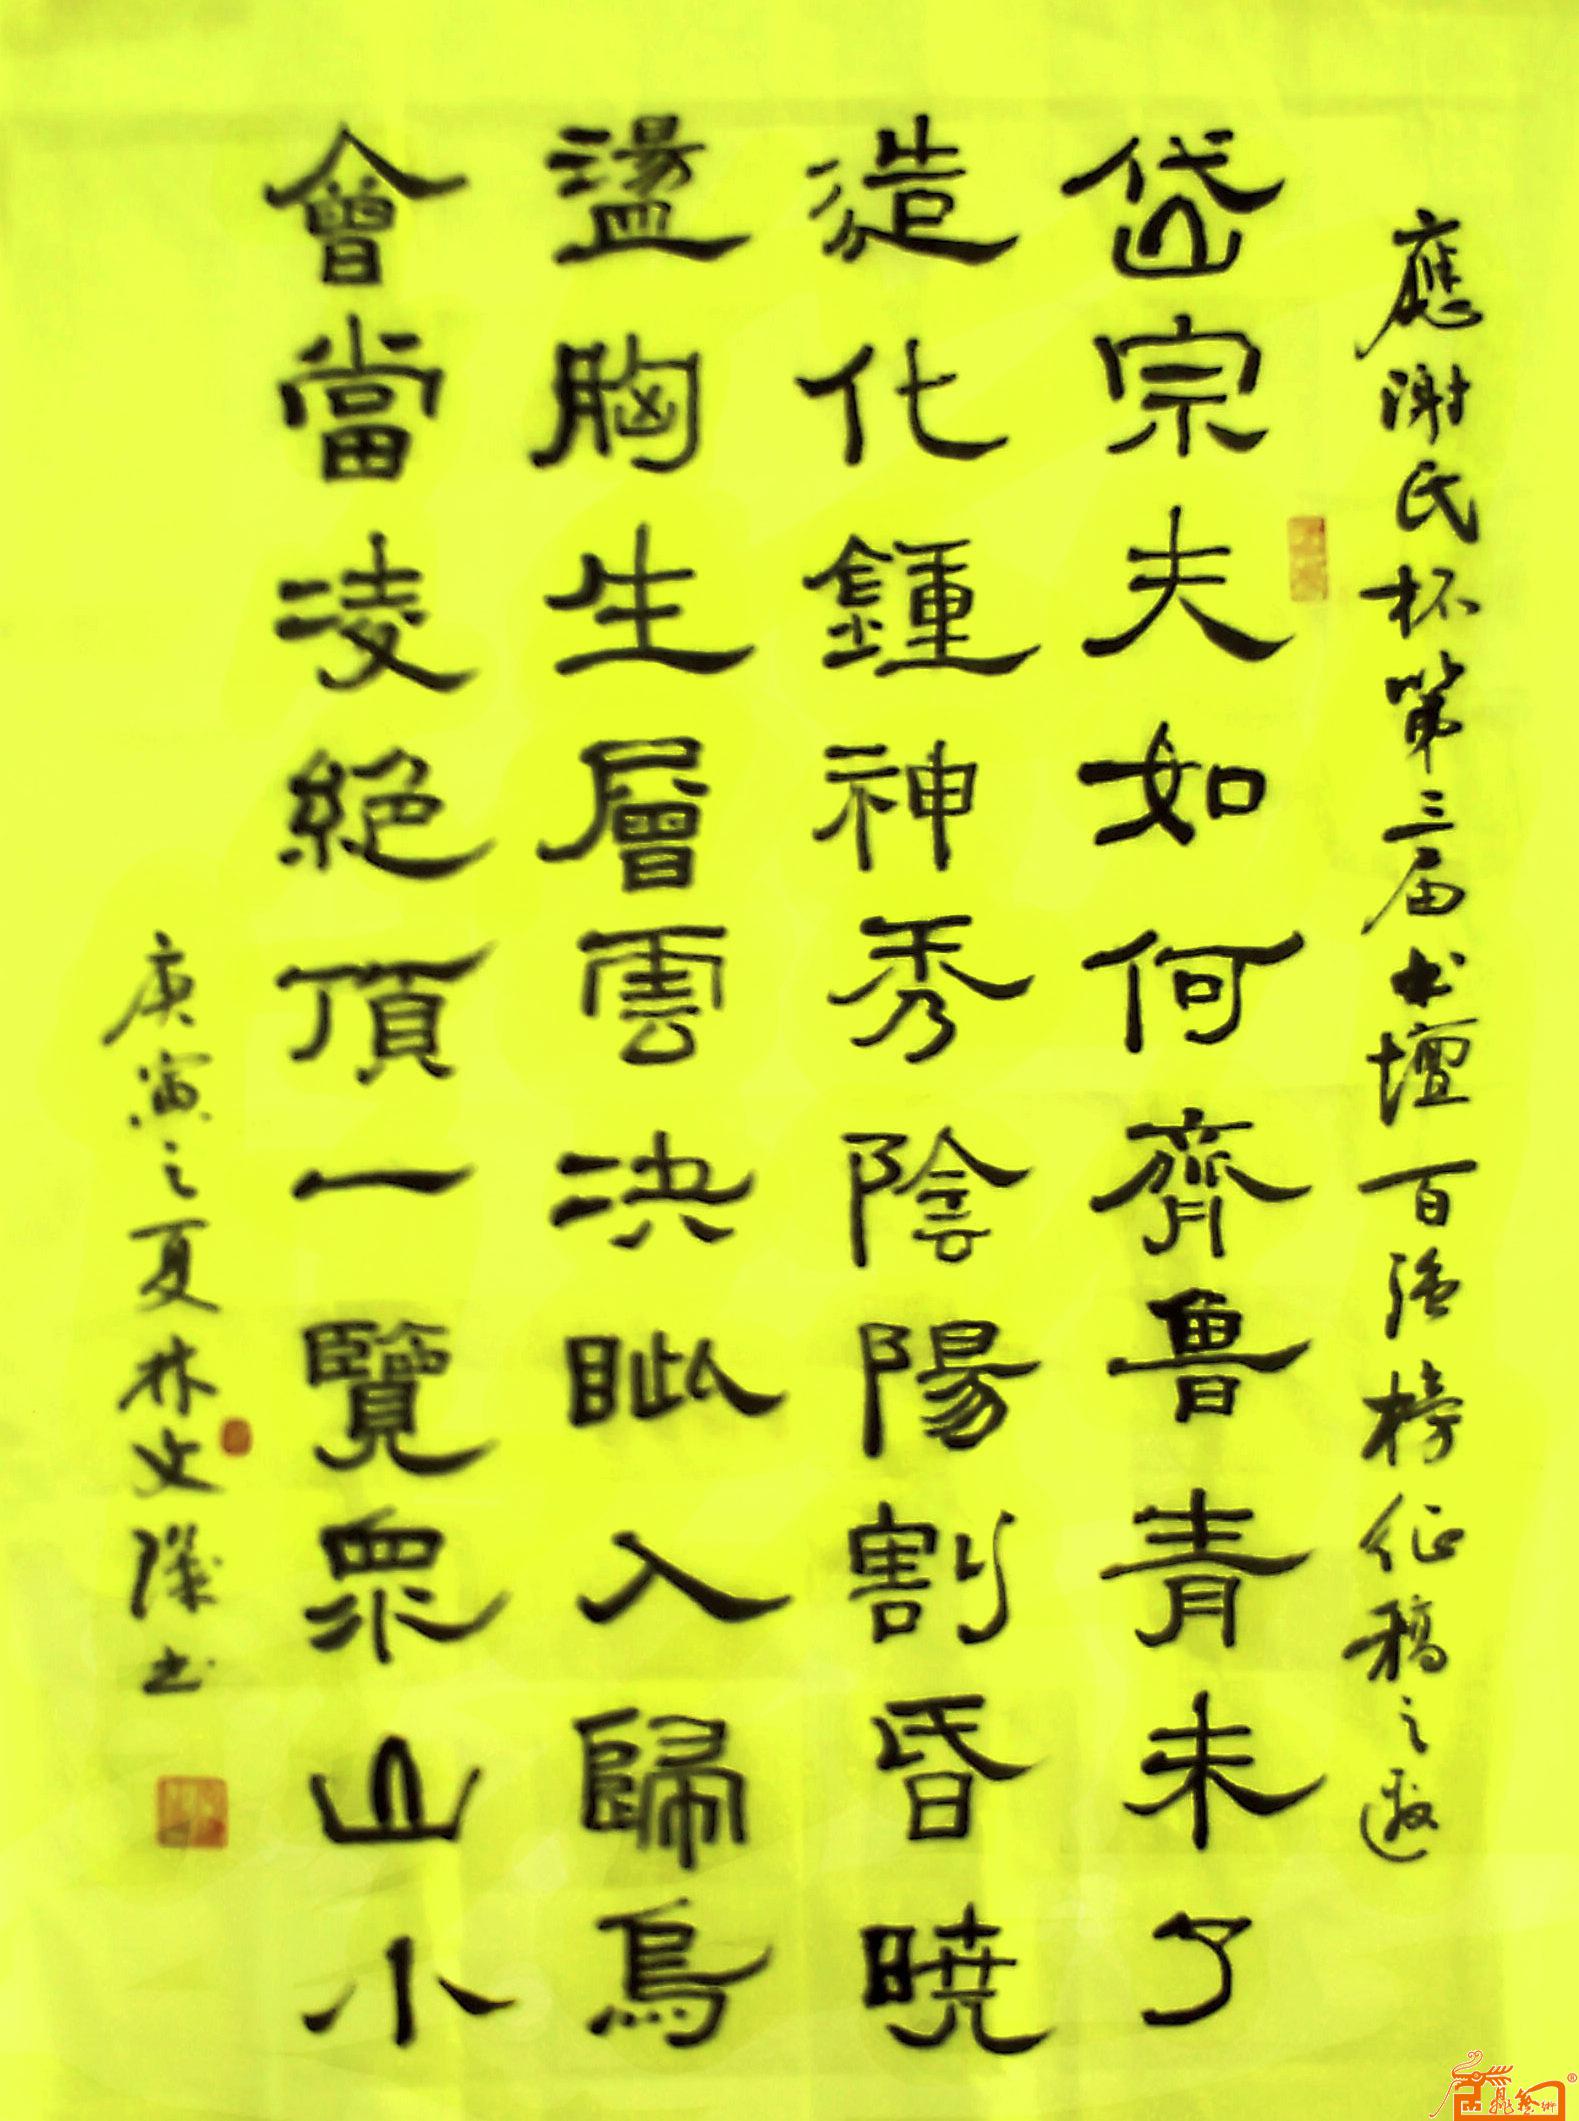 應謝氏杯第三届书壇百强榜征稿之邀
岱宗夫如何齊魯青未了
造化鍾神秀陰陽割昏曉
盪胸生層雲决眦入歸鳥
會當凌絶頂一覽眾山小
庚寅之夏林文书